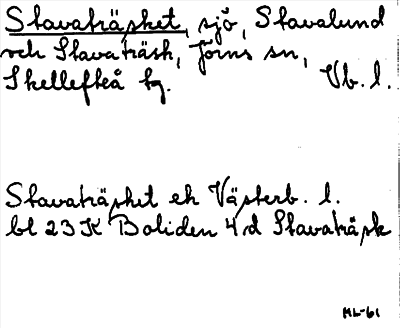 Stavaträsket, sjö, Stavalund
och Stavaträsk, Jörns sn,
Skellefteå tg. Vb. l.
Stavaträsket ek Västerb. l.
bl 23 K Boliden 4 d Stavaträsk
ML-61